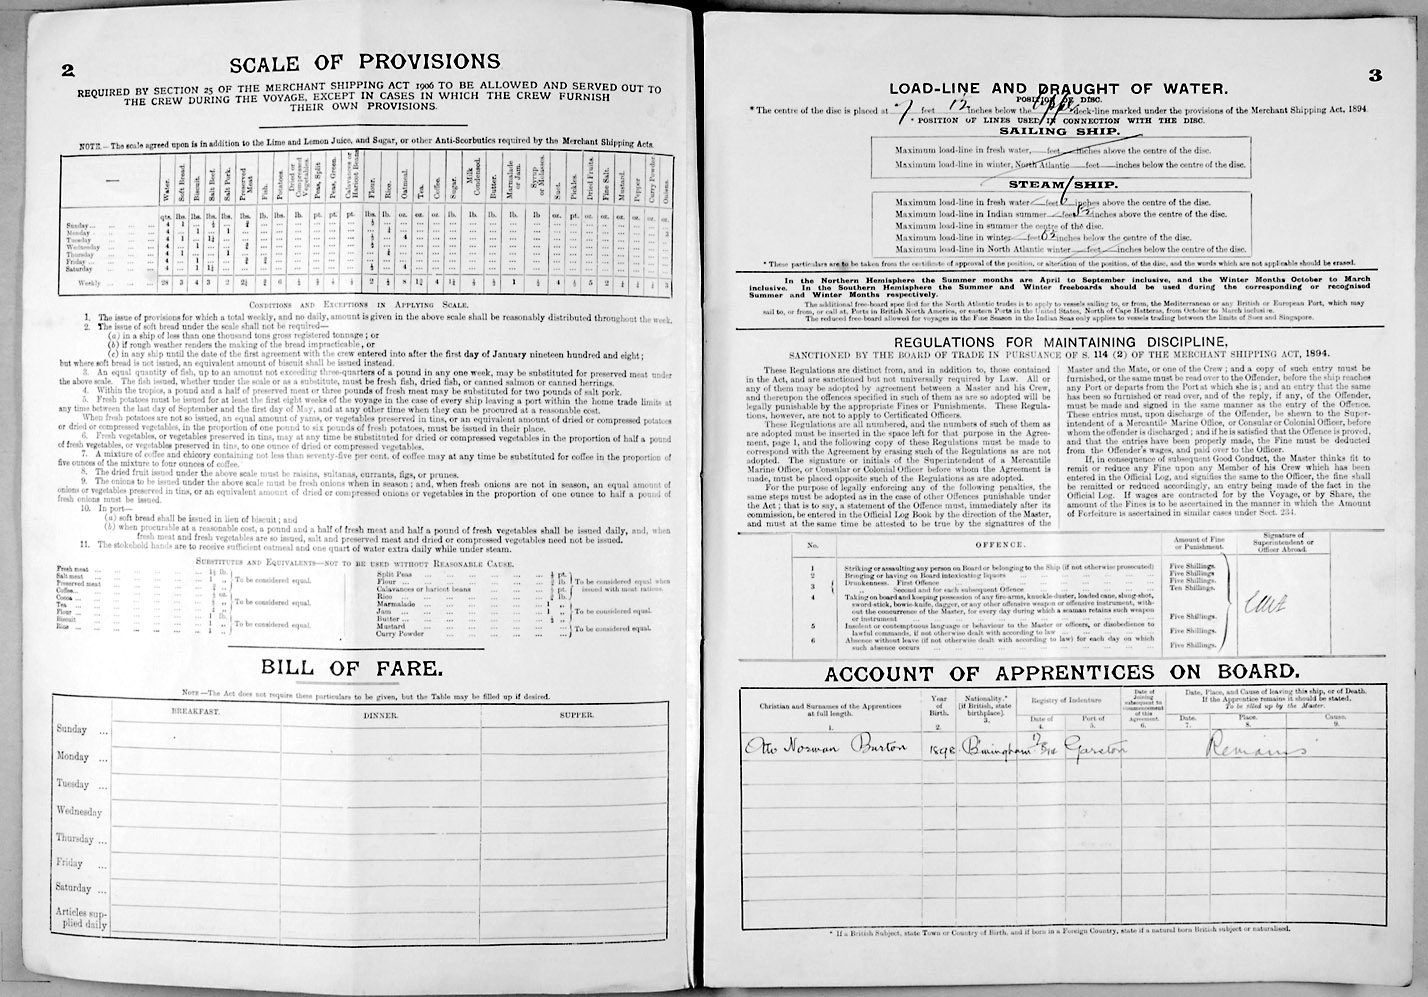 2
SCALE OF PROVISIONS
REQUIRED BY SECTION 25 OF THE MERCHANT SHIPPING ACT 1906 TO BE ALLOWED AND SERVED OUT TO
THE CREW DURING THE VOYAGE, EXCEPT IN CASES IN WHICH THE CREW FURNISH
THEIR OWN PROVISIONS.
NOTE.—The scale agreed upon is in addition to the Lime and Lemon Juice, and Sugar, or other Anti-Scorbutics required by the Merchant Shipping Acts.
Water. Soft Bread. Biscuit. Salt Beef. Salt Pork. Preserved Meat. Fish. Potatoes. Dried or Compressed Vegetables. Peas, Split Peas, Green. Calavances or Haricot Beans Flour. Rice. Oatmeal. Tea. Coffee. Sugar. Milk Condensed. Butter. Marmalade or Jam. Syrup or Molasses. Suet. Pickles. Dried Fruits. Fine Salt. Mustard. Pepper Curry Powder. Onions.
qts. lbs. lbs. lbs. lbs. lbs. lb. lbs. lb. pt. pt. pt. lbs. lb. oz. oz. oz. lb. lb. lb. lb. lb oz. pt. oz. oz. oz. oz. oz. oz.
Sunday
Monday
Tuesday
Wednesday
Thursday
Friday
Saturday
Weekly
CONDITIONS AND EXCEPTIONS IN APPLYING SCALE.
1. The issue of provisions for which a total weekly, and no daily, amount is given in the above scale shall be reasonably distributed throughout the week.
2. The issue of soft bread under the scale shall not be required—
(a) in a ship of less than one thousand tons gross registered tonnage; or
(b) if rough weather renders the making of the bread impracticable, or
(c) in any ship until the date of the first agreement with the crew entered into after the first day of January nineteen hundred and eight;
but where soft bread is not issued, an equivalent amount of biscuit shall be issued instead.
3. An equal quantity of fish, up to an amount not exceeding three-quarters of a pound in any one week, may be substituted for preserved meat under
the above scale. The fish issued, whether under the scale or as a substitute, must be fresh fish, dried fish, or canned salmon or canned herrings.
4. Within the tropics, a pound and a half of preserved meat or three pounds of fresh meat may be substituted for two pounds of salt pork.
5. Fresh potatoes must be issued for at least the first eight weeks of the voyage in the case of every ship leaving a port within the home trade limits at
any time between the last day of September and the first day of May, and at any other time when they can be procured at a reasonable cost.
When fresh potatoes are not so issued, an equal amount of yams, or vegetables preserved in tins, or an equivalent amount of dried or compressed potatoes
or dried or compressed vegetables, in the proportion of one pound to six pounds of fresh potatoes, must be issued in their place.
6. Fresh vegetables, or vegetables preserved in tins, may at any time be substituted for dried or compressed vegetables in the proportion of half a pound
of fresh vegetables, or vegetables preserved in tins, to one ounce of dried or compressed vegetables.
7. A mixture of coffee and chicory containing not less than seventy-five per cent. of coffee may at any time be substituted for coffee in the proportion of
five ounces of the mixture to four ounces of coffee.
8. The dried fruit issued under the above scale must be raisins, sultanas, currants, figs, or prunes.
9. The onions to be issued under the above scale must be fresh onions when in season; and, when fresh onions are not in season, an equal amount of
onions or vegetables preserved in tins, or an equivalent amount of dried or compressed onions or vegetables in the proportion of one ounce to half a pound of
fresh onions must be issued.
10. In port—
(a) soft bread shall be issued in lieu of biscuit; and
(b) when procurable at a reasonable cost, a pound and a half of fresh meat and half a pound of fresh vegetables shall be issued daily, and, when
fresh meat and fresh vegetables are so issued, salt and preserved meat and dried or compressed vegetables need not be issued.
11. The stokehold hands are to receive sufficient oatmeal and one quart of water extra daily while under steam.
SUBSTITUTES AND EQUIVALENTS—NOT TO BE USED WITHOUT REASONABLE CAUSE.
Fresh meat
Salt meat
Preserved meat
To be considered equal.
Coffee
Cocoa
Tea
To be considered equal.
Flour
Biscuit
Rice
To be considered equal.
Split Peas
Flour
Calavances or haricot beans
Rice
To be considered equal when issued with meat rations.
Marmalade
Jam
Butter
To be considered equal.
Mustard
Curry Powder
To be considered equal.
BILL OF FARE.
NOTE—The Act does not require these particulars to be given, but the Table may be filled up if desired.
BREAKFAST. DINNER. SUPPER.
Sunday ...
Monday ...
Tuesday ...
Wednesday
Thursday ...
Friday ...
Saturday ...
Articles sup-
plied daily
3
LOAD-LINE AND DRAUGHT OF WATER.
POSITION OF DISC.
* The centre of the disc is placed at 7 feet 12 inches below the upper deck-line marked under the provisions of the Merchant Shipping Act, 1894.
* POSITION OF LINES USED IN CONNECTION WITH THE DISC.
SAILING SHIP.
Maximum load-line in fresh water, feet inches above the centre of the disc.
Maximum load-line in winter, North Atlantic feet inches below the centre of the disc.
STEAM SHIP.
Maximum load-line in fresh water feet 6 inches above the centre of the disc.
Maximum load-line in Indian summer feet inches above the centre of the disc.
Maximum load-line in summer the centre of the disc.
Maximum load-line in winter feet inches below the centre of the disc.
Maximum load-line in North Atlantic winter feet inches below the centre of the disc.
* These particulars are to be taken from the certificate of approval of the position, or alteration of the position, of the disc, and the words which are not applicable should be erased.
In the Northern Hemisphere the Summer months are April to September inclusive, and the Winter Months October to March
inclusive. In the Southern Hemisphere the Summer and Winter freeboards should be used during the corresponding or recognised
Summer and Winter Months respectively.
The additional free-board specified for the North Atlantic trades is to apply to vessels sailing to, or from, the Mediterranean or any British or European Port, which may
sail to, or from, or call at, Ports in British North America, or eastern Ports in the United States, North of Cape Hatteras, from October to March inclusive.
The reduced free-board allowed for voyages in the Fine Season in the Indian Seas only applies to vessels trading between the limits of Suez and Singapore.
REGULATIONS FOR MAINTAINING DISCIPLINE,
SANCTIONED BY THE BOARD OF TRADE IN PURSUANCE OF S. 114 (2) OF THE MERCHANT SHIPPING ACT, 1894.
These Regulations are distinct from, and in addition to, those contained
in the Act, and are sanctioned but not universally required by Law. All or
any of them may be adopted by agreement between a Master and his Crew,
and thereupon the offences specified in such of them as are so adopted will be
legally punishable by the appropriate Fines or Punishments. These Regula-
tions, however, are not to apply to Certificated Officers.
These Regulations are all numbered, and the numbers of such of them as
are adopted must be inserted in the space left for that purpose in the Agree-
ment, page 1, and the following copy of these Regulations must be made to
correspond with the Agreement by erasing such of the Regulations as are not
adopted. The signature or initials of the Superintendent of a Mercantile
Marine Office, or Consular or Colonial Officer before whom the Agreement is
made, must be placed opposite such of the Regulations as are adopted.
For the purpose of legally enforcing any of the following penalties, the
same steps must be adopted as in the case of other Offences punishable under
the Act; that is to say, a statement of the Offence must, immediately after its
commission, be entered in the Official Log Book by the direction of the Master,
and must at the same time be attested to be true by the signatures of the
Master and the Mate, or one of the Crew; and a copy of such entry must be
furnished, or the same must be read over to the Offender, before the ship reaches
any Port or departs from the Port at which she is; and an entry that the same
has been so furnished or read over, and of the reply, if any, of the Offender,
must be made and signed in the same manner as the entry of the Offence.
These entries must, upon discharge of the Offender, be shewn to the Super-
intendent of a Mercantile Marine Office, or Consular or Colonial Officer, before
whom the offender is discharged; and if he is satisfied that the Offence is proved,
and that the entries have been properly made, the Fine must be deducted
from the Offender's wages, and paid over to the Officer.
If, in consequence of subsequent Good Conduct, the Master thinks fit to
remit or reduce any Fine upon any Member of his Crew which has been
entered in the Official Log, and signifies the same to the Officer, the fine shall
be remitted or reduced accordingly, an entry being made of the fact in the
Official Log. If wages are contracted for by the Voyage, or by Share, the
amount of the Fines is to be ascertained in the manner in which the Amount
of Forfeiture is ascertained in similar cases under Sect. 234.
No. OFFENCE. Amount of Fine or Punishment. Signature of Superintendent or Officer Abroad.
1 Striking or assaulting any person on Board or belonging to the Ship (if not otherwise prosecuted) Five Shillings.
2 Bringing or having on Board intoxicating liquors Five Shillings.
3 Drunkenness. First Offence Five Shillings.
Second and for each subsequent Offence Ten Shillings.
4 Taking on board and keeping possession of any fire-arms, knuckle-duster, loaded cane, slung-shot,
sword-stick, bowie-knife, dagger, or any other offensive weapon or offensive instrument, with-
out the concurrence of the Master, for every day during which a seaman retains such weapon
or instrument Five Shillings.
5 Insolent or contemptuous language or behaviour to the Master or officers, or disobedience to
lawful commands, if not otherwise dealt with according to law Five Shillings.
6 Absence without leave (if not otherwise dealt with according to law) for each day on which
such absence occurs Five Shillings.
ACCOUNT OF APPRENTICES ON BOARD.
Christian and Surnames of the Apprentices at full length. 1. Year of Birth. 2. Nationality.* [if British, state birthplace]. 3. Registry of Indenture Date of 4. Port of 5. Date of Joining subsequent to commencement of this Agreement. 6. Date, Place, and Cause of leaving this ship, or of Death. If the Apprentice remains it should be stated. To be filled up by the Master. Date. 7. Place. 8. Cause. 9.
Otto Norman Burton 1898 B'mingham Garston Remains
* If a British Subject, state Town or Country of Birth, and if born in a Foreign Country, state if a natural born British subject or naturalised.